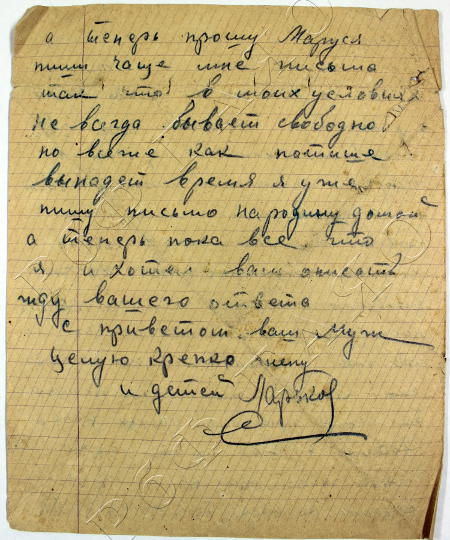 а теперь прошу Маруся
пиши чаще мне письма
так что в моих условиях
не всегда бывает свободно
но всеже как потише
выпадет время я уже
пишу письмо народину домой
а теперь пока все что
я и хотел вам описать
жду вашего ответа
с приветом ваш муж
целую крепко жену
и детей Ларьков